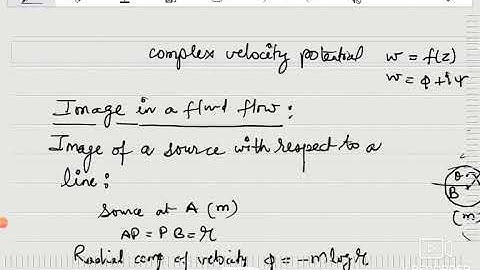 complex velocity potential w = f(z)
w = φ + iψ
Image in a fluid flow :
Image of a source with respect to a
line :
Source at A (m)
AP = PB = r
Radial comp of velocity φ = -m log r
θ
B
(m)